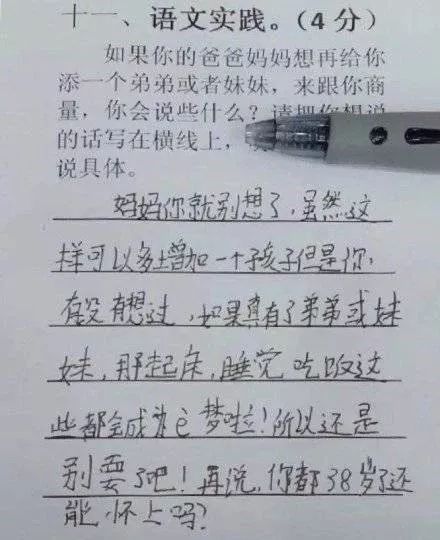 十一、语文实践。(4 分)
如果你的爸爸妈妈想再给你
添一个弟弟或者妹妹，来跟你商
量，你会说些什么？请把你想说
的话写在横线上，
说具体。
妈妈你就别想了，虽然这
样可以多增加一个孩子但是你，
有没有想过，如果真有了弟弟或妹
妹，那起床，睡觉 吃饭这
些都会成为梦啦！所以还是
别要了吧！再说，你都38岁了还
能怀上吗？